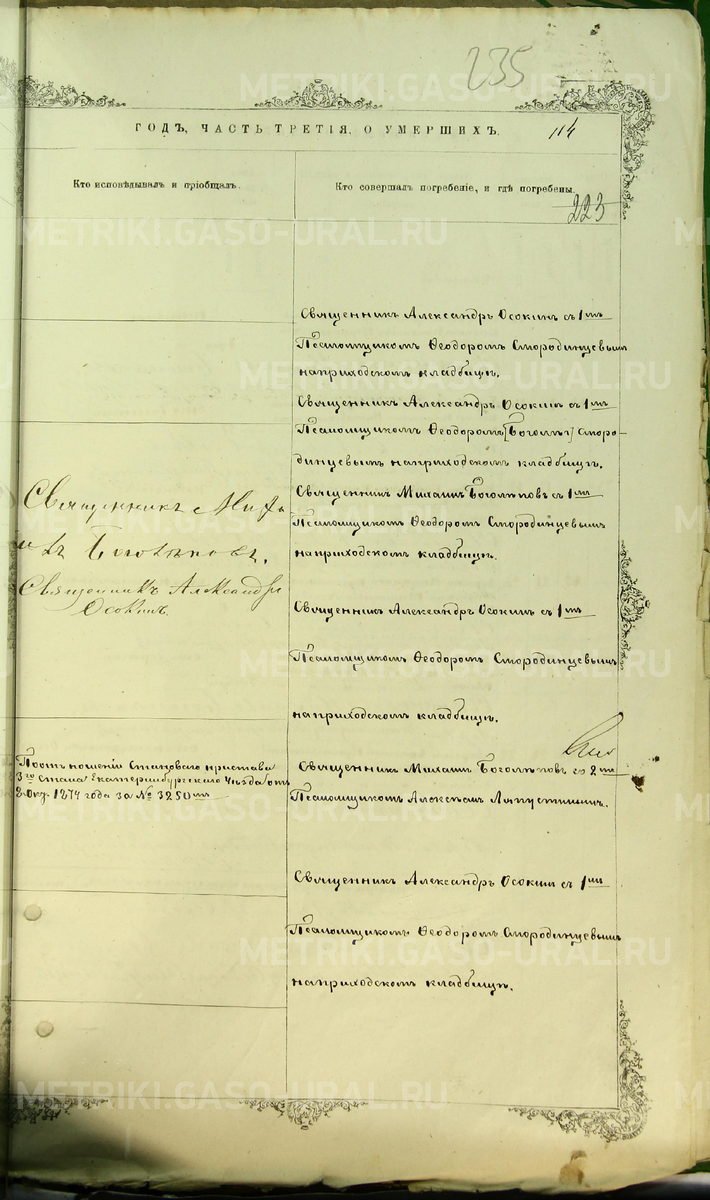 235
ГОДЪ, ЧАСТЬ ТРЕТІЯ, О УМЕРШИХЪ.
114
Кто исповѣдывалъ и пріобщалъ.
Кто совершалъ погребеніе, и гдѣ погребены.
223
Священникъ Александръ Осокинъ съ 1мъ
Псаломщикомъ Ѳеодоромъ Смородинцевымъ
на приходскомъ кладбищѣ.
Священникъ Александръ Осокинъ съ 1мъ
Псаломщикомъ Ѳеодоромъ [Боголѣп] Сморо-
динцевымъ на приходскомъ кладбищѣ.
Священникъ Михаилъ Боголѣповъ съ 1мъ
Псаломщикомъ Ѳеодоромъ Смородинцевымъ
на приходскомъ кладбищѣ.
Священникъ Миха-
илъ Боголѣповъ.
Священникъ Александръ
Осокинъ.
Священникъ Александръ Осокинъ съ 1мъ
Псаломщикомъ Ѳеодоромъ Смородинцевымъ
на приходскомъ кладбищѣ.
По отъношенію Становаго пристава
3го стана Екатеринбургскаго Уѣзда отъ
1874 года за № 3250мъ
Священникъ Михаилъ Боголѣповъ съ 2мъ
Псаломщикомъ Алексѣемъ Ляпустинымъ.
Священникъ Александръ Осокинъ съ 1мъ
Псаломщикомъ Ѳеодоромъ Смородинцевымъ
на приходскомъ кладбищѣ.
METRIKI.GASO-URAL.RU